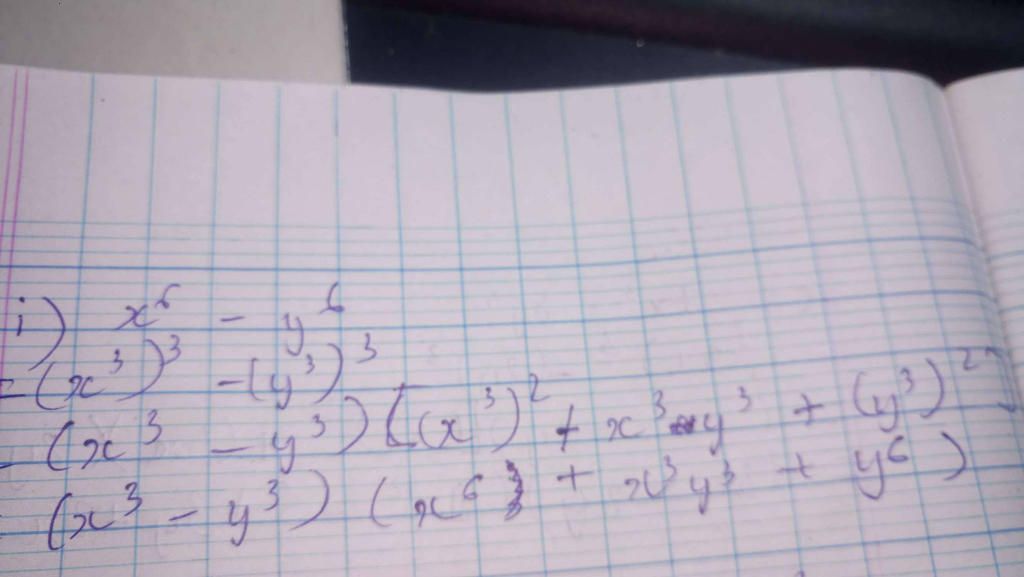 i) x⁶ - y⁶
= (x³)³ - (y³)³
= (x³ - y³) [(x³)² + x³ y³ + (y³)²]
= (x³ - y³) (x⁶ + x³y³ + y⁶)